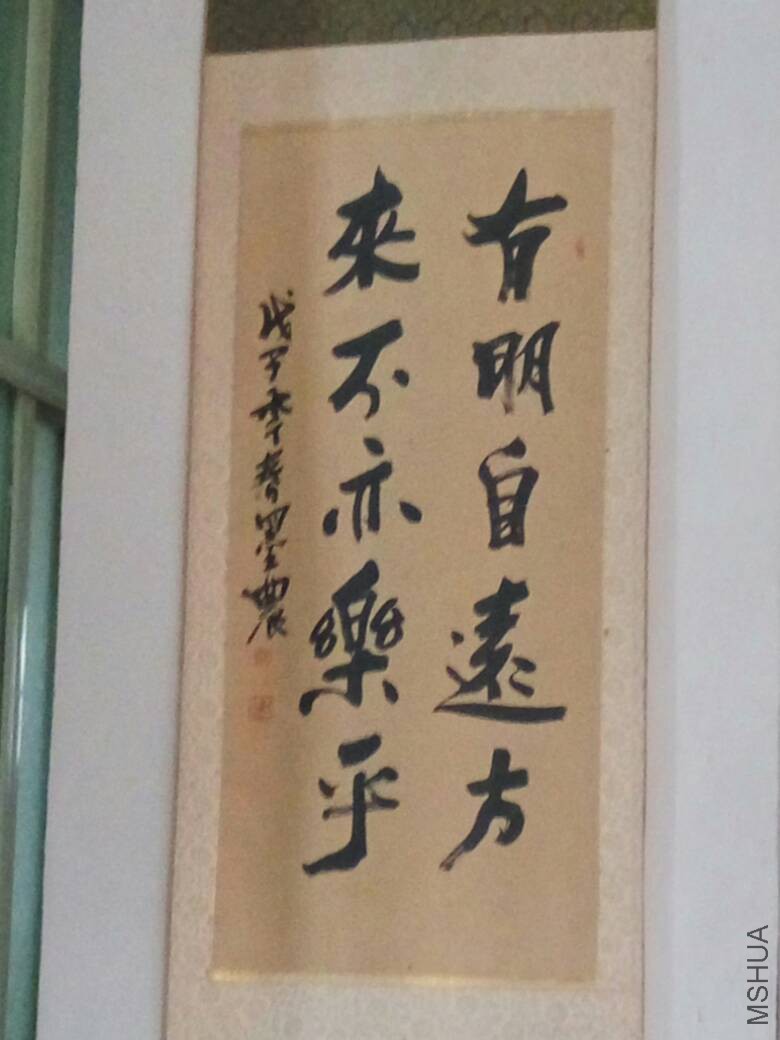 有朋自遠方
來不亦樂乎
戊子季春墨農
MSHUA